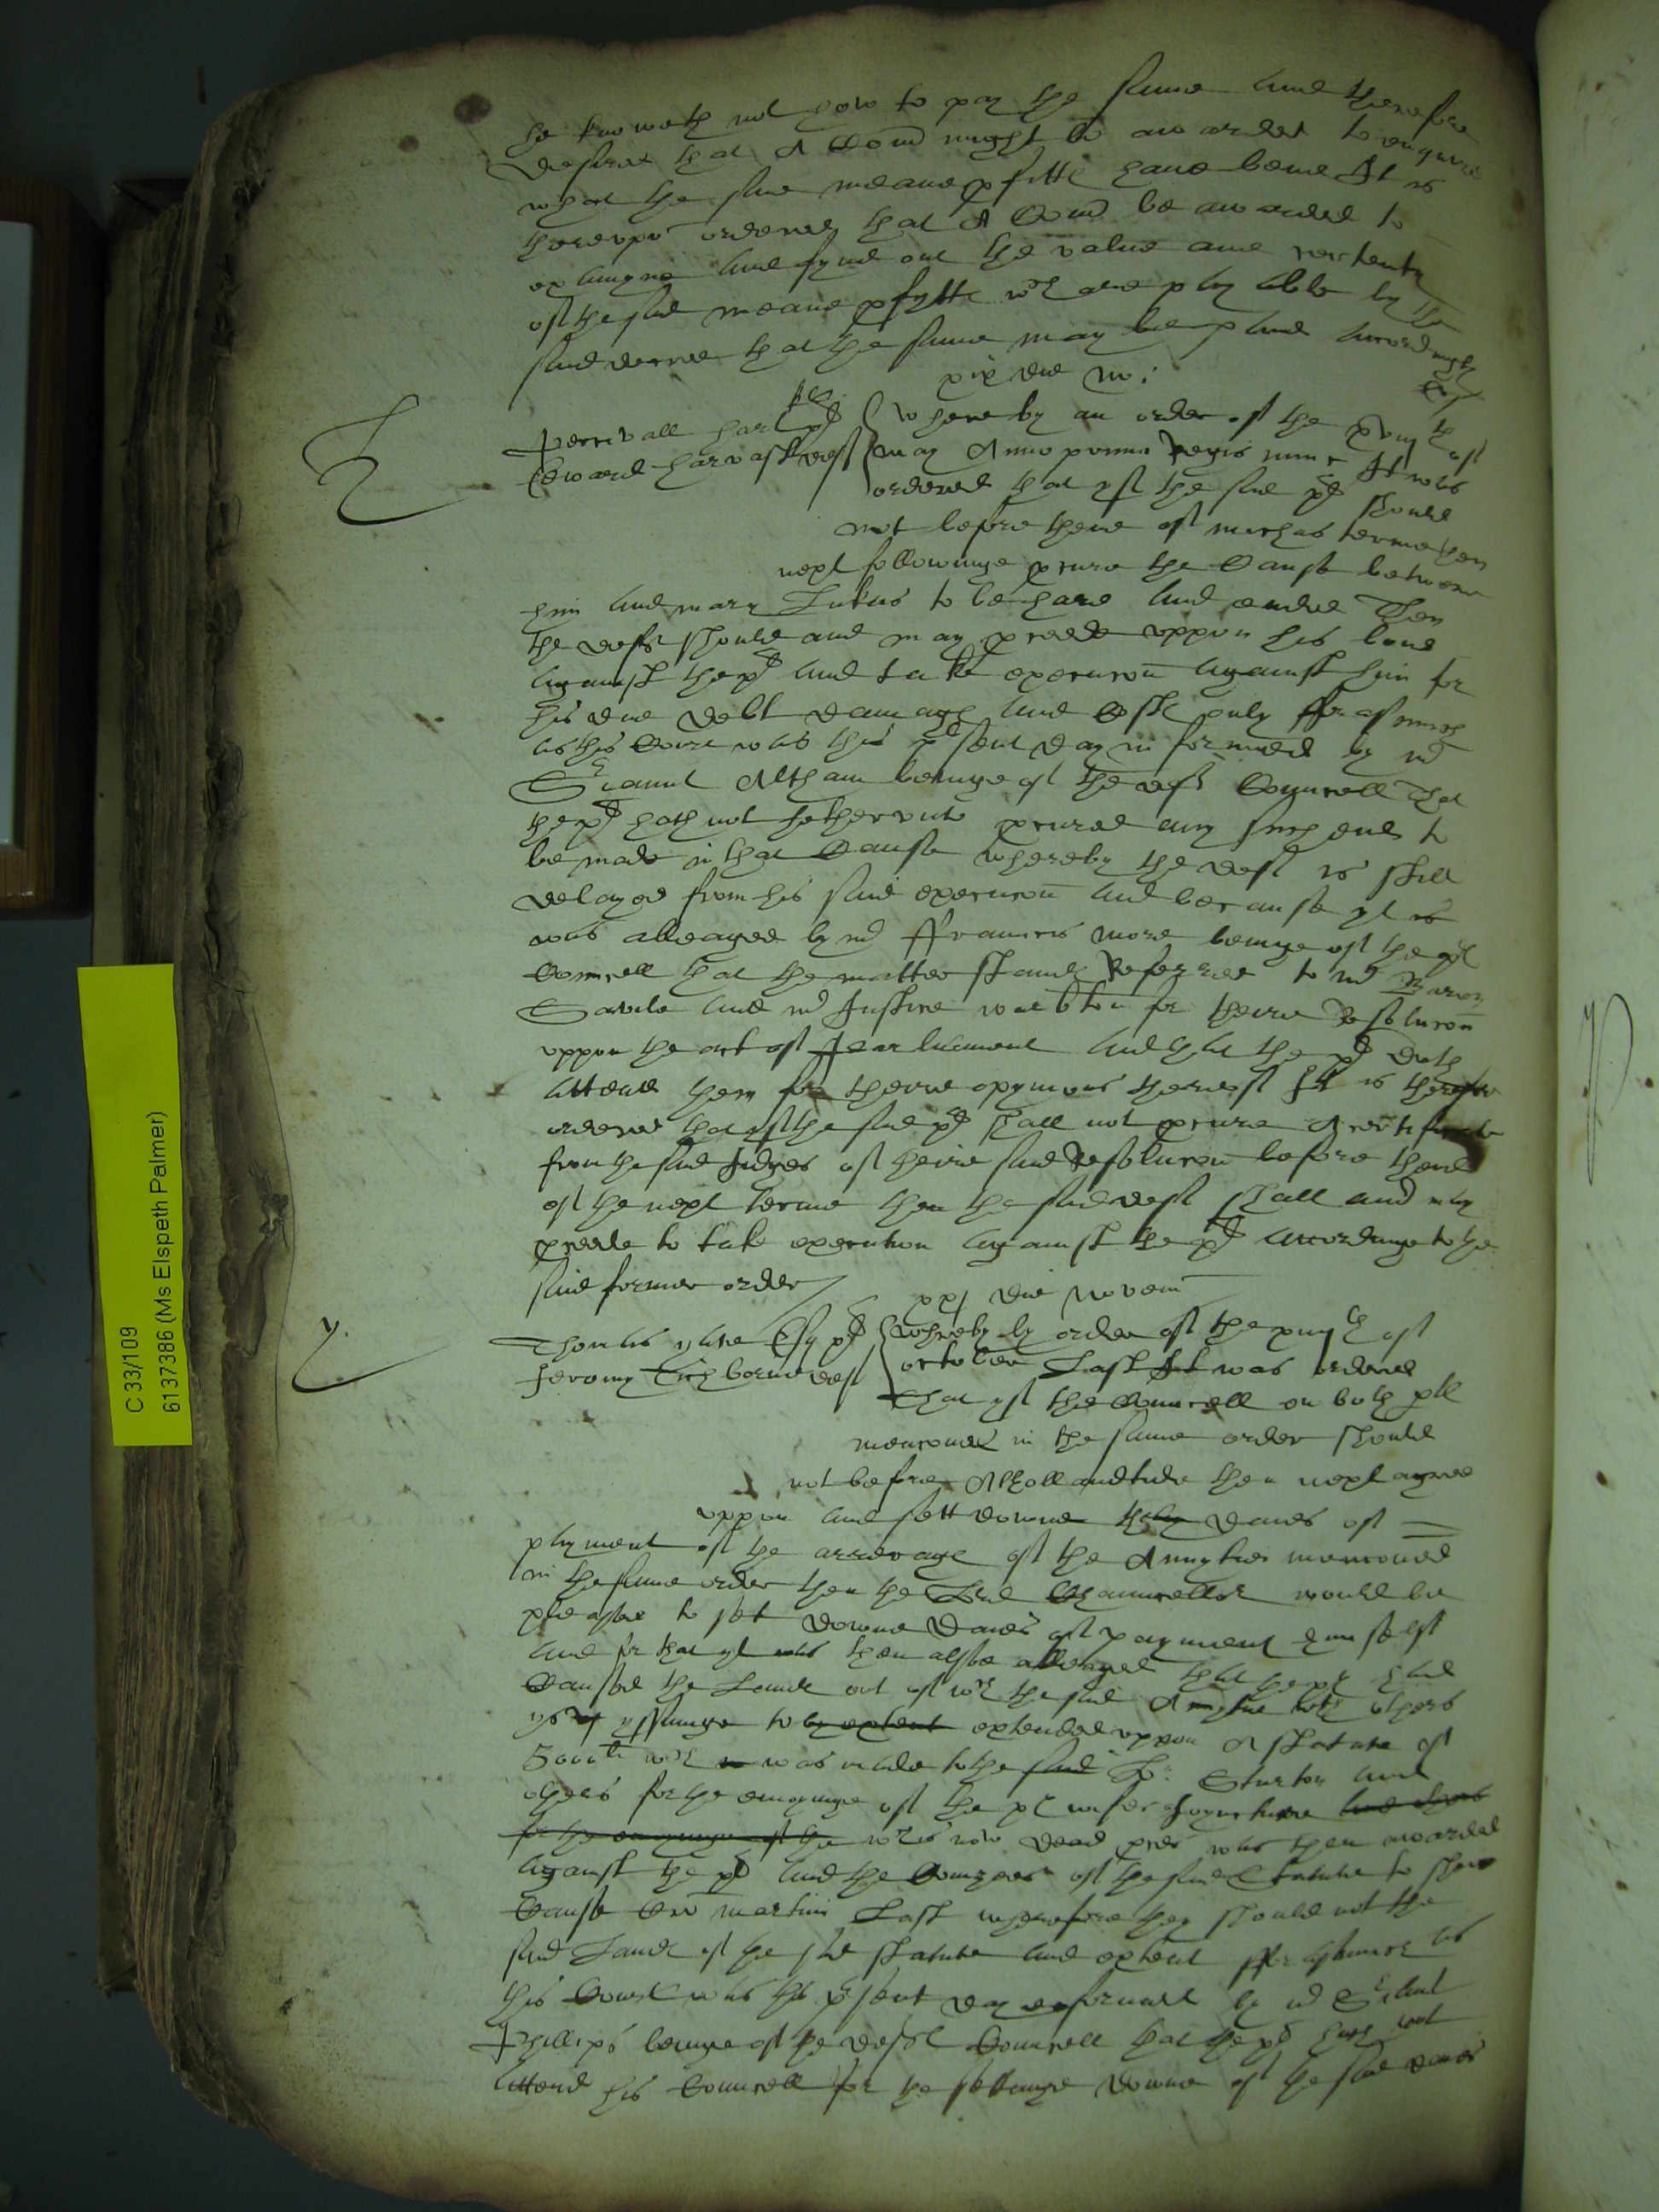 he knoweth not how to pay the same And therefore
desired that A Com̄ might be awarded to enquire
what the said meane p̱fitts have bene It is
thereupon ordered that A Com̄ be awarded to
examyne And fynd out the value and certenty
of the said meane p̱fytts wch are payable by the
said decree that the same may be paid Accordingly
xix die No:
Percivall Hart pl Whereby an order of the xviijth of
Edward Harvast deft May Anno primo Regis nunc It was
ordered that yf the said pl should
not before thend of Michas terme then
next followinge p̱cure the Cause betwene
him And mary Lukas to be hard And ended Then
the deft should and may p̱ceede uppon his bond
Against the pl And take execucōn Against him for
his due debt damages And Costs only fforasmuch
As this Court was this p̱sent day informed by mr
Sriaunt Altham beinge of the defts Councell That
the pl hath not hetherunto p̱cured any such end to
be made in that Cause whereby the deft is still
delayed from his said execucōn And because yt is
was alleaged by mr ffrauncis more beinge of the pls
Councell that the matter stands Referred to mr Baron
Savile And mr Justice warbton for theire Resolucōn
uppon the act of Pearliament And that the pl doth
Attend them for theire opynions therof It is therefore
ordered that yf the said pl shall not p̱cure A certificate
from the said Judges of theire said Resolucōn before thend
of the next terme then the said deft shall and may
p̱ceede to take execution Against the pl Accordinge to the
said former order
xxj die Novem
y.
Thomas Esq pl Whereby by order of the of
Jeromy Tichborne deft october Last It was ordered
That yf the Councell on both pts
mencōned in the same order should
not before Alhollandtide then next agree
uppon And sett downe dayes of
payment of the arrerages of the Annytie mencōned
in the same order then the Lord Chauncellor would be
pleased to set downe dayes of payment himself
And for that yt was then also alleaged that the pl had
Caused the Lands out of wch the said Anytie with others
yssuinge to by extent extended uppon A statute of
5000li wch was made to the said Lo: Sturton And
others for the enioyinge of the pls wifes Joyncture And others
for the enioyinge of the who is now dead p̱ces was then awarded
Against the pl And the Conizees of the said Statute to shew
Cause Cro martini Last wherefore they should not the
said Lands of the sd statute And extent fforasmuch as
this Court was this p̱sent day enformed by mr Sriaunt
Phillips beinge of the defts Councell that the pl hath not
Attend his Councell for the settinge downe of the said dayes
C 33/109
6137386 (Ms Elspeth Palmer)